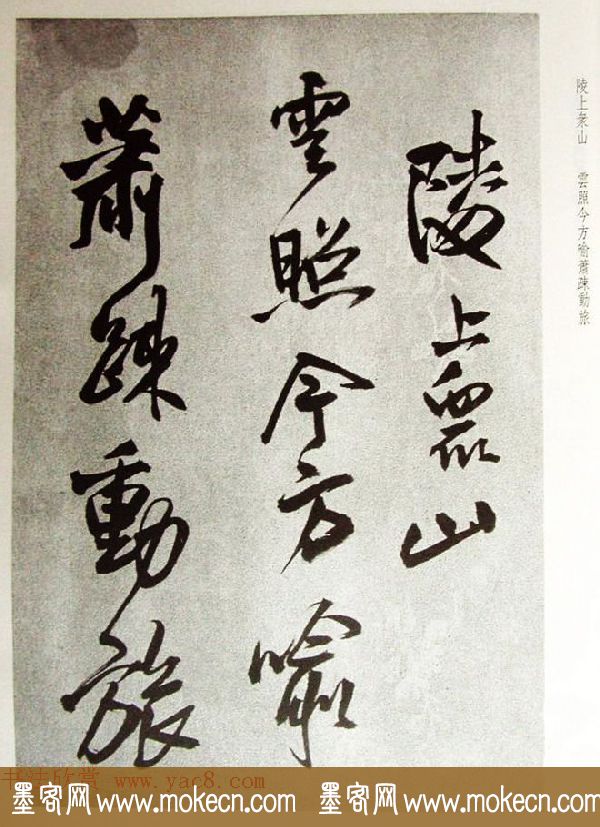 陵上衆山 雲照今方喻蕭疎動旅
陵上眾山
雲照今方喻
蕭踈動旅
书法欣赏 www.yac8.com
墨客网 www.mokecn.com 墨客网 www.mokecn.com